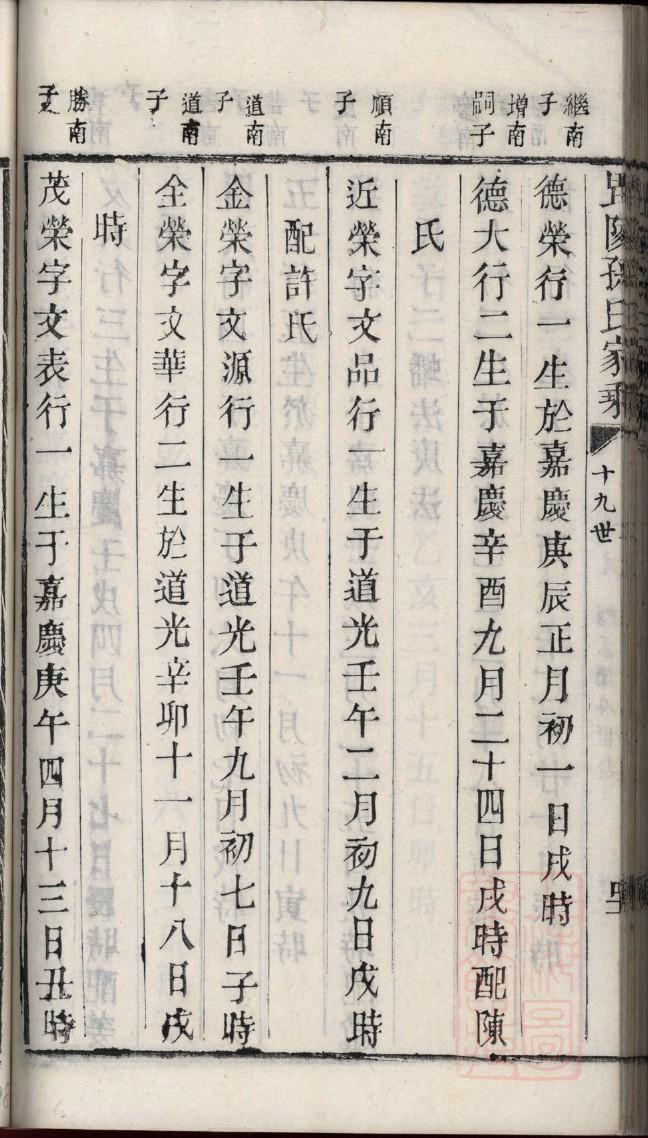 孫氏家乘
十九世
繼南
子
德榮行一生於嘉慶庚辰正月初一日戌時
增南
嗣子
德大行二生于嘉慶辛酉九月二十四日戌時配陳
氏
順南
子
近榮字文品行一生于道光壬午二月初九日戌時
配許氏
道南
子
金榮字文源行一生于道光壬午九月初七日子時
道南
子
全榮字文華行二生於道光辛卯十一月十八日戌
時
勝南
子
茂榮字文表行一生于嘉慶庚午四月十三日丑時